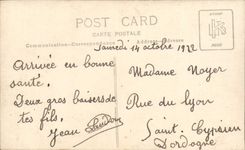 POST CARD
CARTE POSTALE
Communication-Correspondance
Address-Adresse
Samedi 14 octobre 1922
Arrivée en bonne
santé.
Deux gros baisers de
tes fils.
Jean
Madame Noyer
Rue du Lyon
Saint. Cyprien
Dordogne